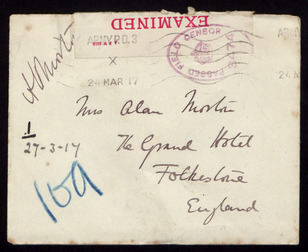 EXAMINED
ARMY P.O. 3
X
24 MAR 17
PASSED FIELD CENSOR
3474
Mrs Alan Morton
The Grand Hotel
Folkestone
England
1
27-3-17
109